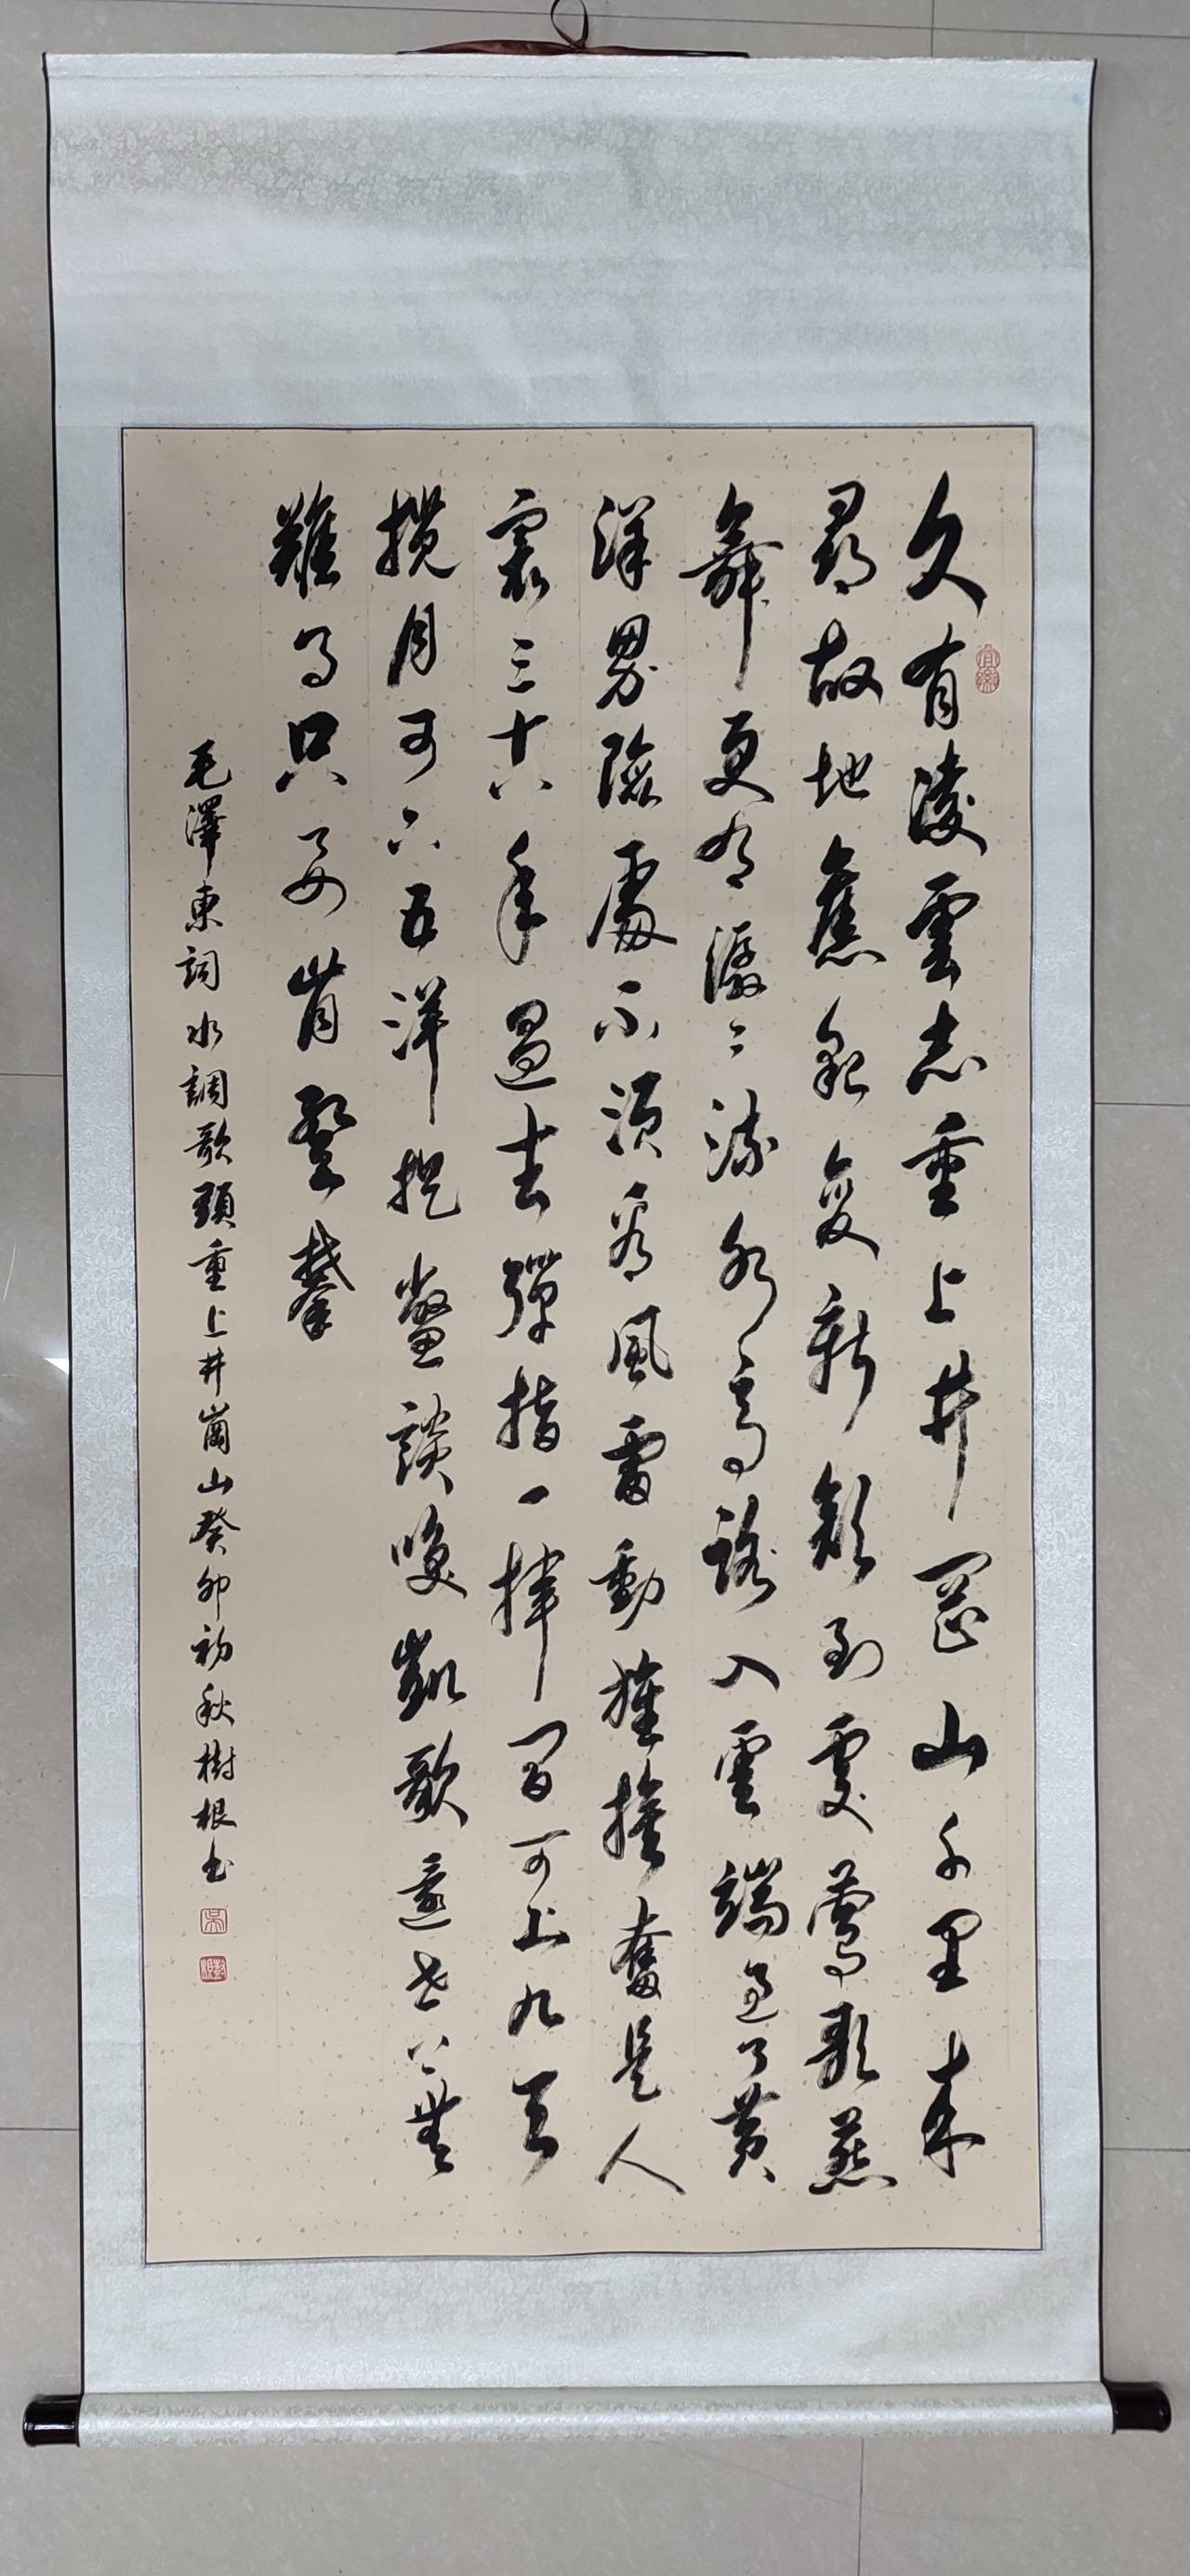 久有凌雲志重上井岡山千里來
尋故地舊貌變新顏到處鶯歌燕
舞更有潺々流水高路入雲端過了黃
洋界險處不須看風雷動旌旗奮是人
寰三十八年過去彈指一揮間可上九天
攬月可下五洋捉鱉談笑凱歌還世上無
難事只要肯登攀
毛澤東詞水調歌頭重上井崗山癸卯初秋樹根書